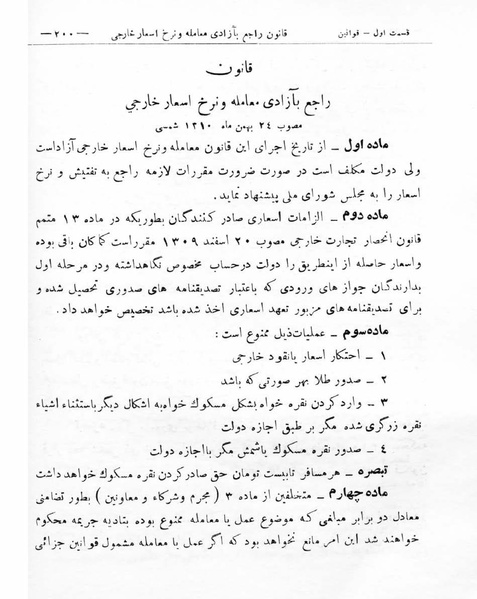 قسمت اول – قوانین قانون راجع بآزادی معامله و نرخ اسعار خارجی —۲۰۰—
قانون
راجع بآزادی معامله و نرخ اسعار خارجي
مصوب ۲۴ بهمن ماه ۱۳۱۰ شمسی
ماده اول – از تاریخ اجرای این قانون معامله و نرخ اسعار خارجی آزاد است
ولی دولت مکلف است در صورت ضرورت مقررات لازمه راجع به تفتیش و نرخ
اسعار را به مجلس شورای ملی پیشنهاد نماید.
ماده دوم – الزامات اسعاری صادر کنندگان بطوریکه در ماده ۱۳ متمم
قانون انحصار تجارت خارجی مصوب ۲۰ اسفند ۱۳۰۹ مقرر است کماکان باقی بوده
و اسعار حاصله از اینطریق را دولت در حساب مخصوص نگاهداشته و در مرحله اول
بدارندگان جواز های ورودی که باعتبار تصدیقنامه های صدوری تحصیل شده و
برای تسدیقنامه های مزبور تعهد اسعاری اخذ شده باشد تخصیص خواهد داد.
ماده سوم – عملیات ذیل ممنوع است :
۱ – احتکار اسعار یا نقود خارجی
۲ – صدور طلا بهر صورتی که باشد
۳ – وارد کردن نقره خواه بشکل مسکوك خواه به اشکال دیگر باستثناء اشیاء
نقره زرگری شده مگر بر طبق اجازه دولت
٤ – صدور نقره مسکوك یا شمش مگر با اجازه دولت
تبصره – هر مسافر تا بیست تومان حق صادر کردن نقره مسکوك خواهد داشت
ماده چهارم – متخلفین از ماده ۳ ( مجرم و شرکاء و معاونین ) بطور تضامنی
معادل دو برابر مبالغی که موضوع عمل یا معامله ممنوع بوده بتادیه جریمه محکوم
خواهند شد این امر مانع نخواهد بود که اگر عمل یا معامله مشمول قوانین جزائی